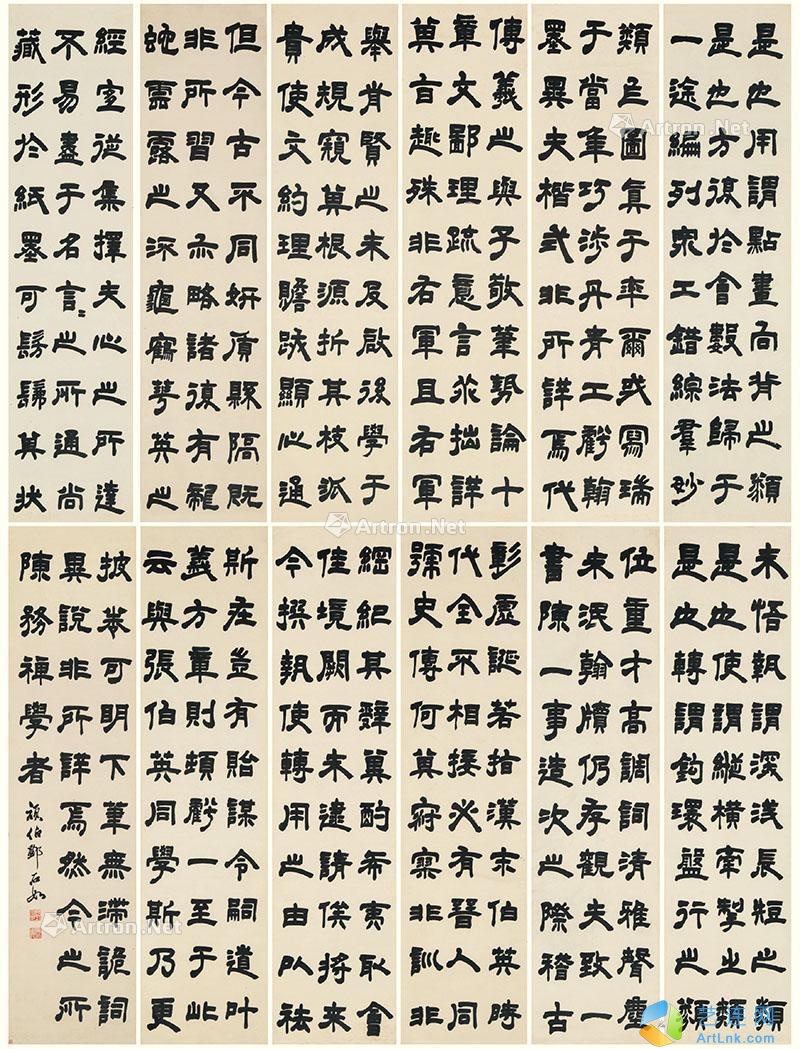 是也用謂點畫向背之類
是也方復於會數法歸于
一途編列眾工錯綜羣妙
類乍圖真于率爾或寫瑞
于當年巧涉丹青工虧翰
墨異夫楷式非所詳焉代
傳羲之與子敬筆勢論十
章文鄙理疏意言乖拙詳
其旨趣殊非右軍且右軍
舉前賢之未及啟後學于
成規窺其根源析其枝派
貴使文約理贍跡顯心通
但今古不同妍質縣隔既
非所習又亦略諸復有龍
蛇雲露之流龜鶴華英之
經宜從棄擇夫心之所達
不易盡于名言〻之所通尚
藏形於紙墨可髣髴其狀
未悟執謂深淺長短之類
是也使謂縱橫牽掣之類
是也轉謂鉤環盤紆之類
位重才高調詞清雅聲塵
未泯翰牘仍存觀夫致一
書陳一事造次之際稽古
彰虛誕若指漢末伯英時
代全不相接必有晉人同
號史傳何其寂寥非訓非
綱紀其辭冀酌希夷取會
佳境闕而未逮請俟將來
今撰執使轉用之由以祛
斯在豈有貽謀令嗣道叶
義方章則頓虧一至于此
云與張伯英同學斯乃更
披卷可明下筆無滯詭詞
異說非所詳焉然今之所
陳務裨學者
頑伯鄧石如
Artron.Net
Artron.Net
Artron.Net
Artron.Net
Artron.Net
艺库网
ArtLnk.com